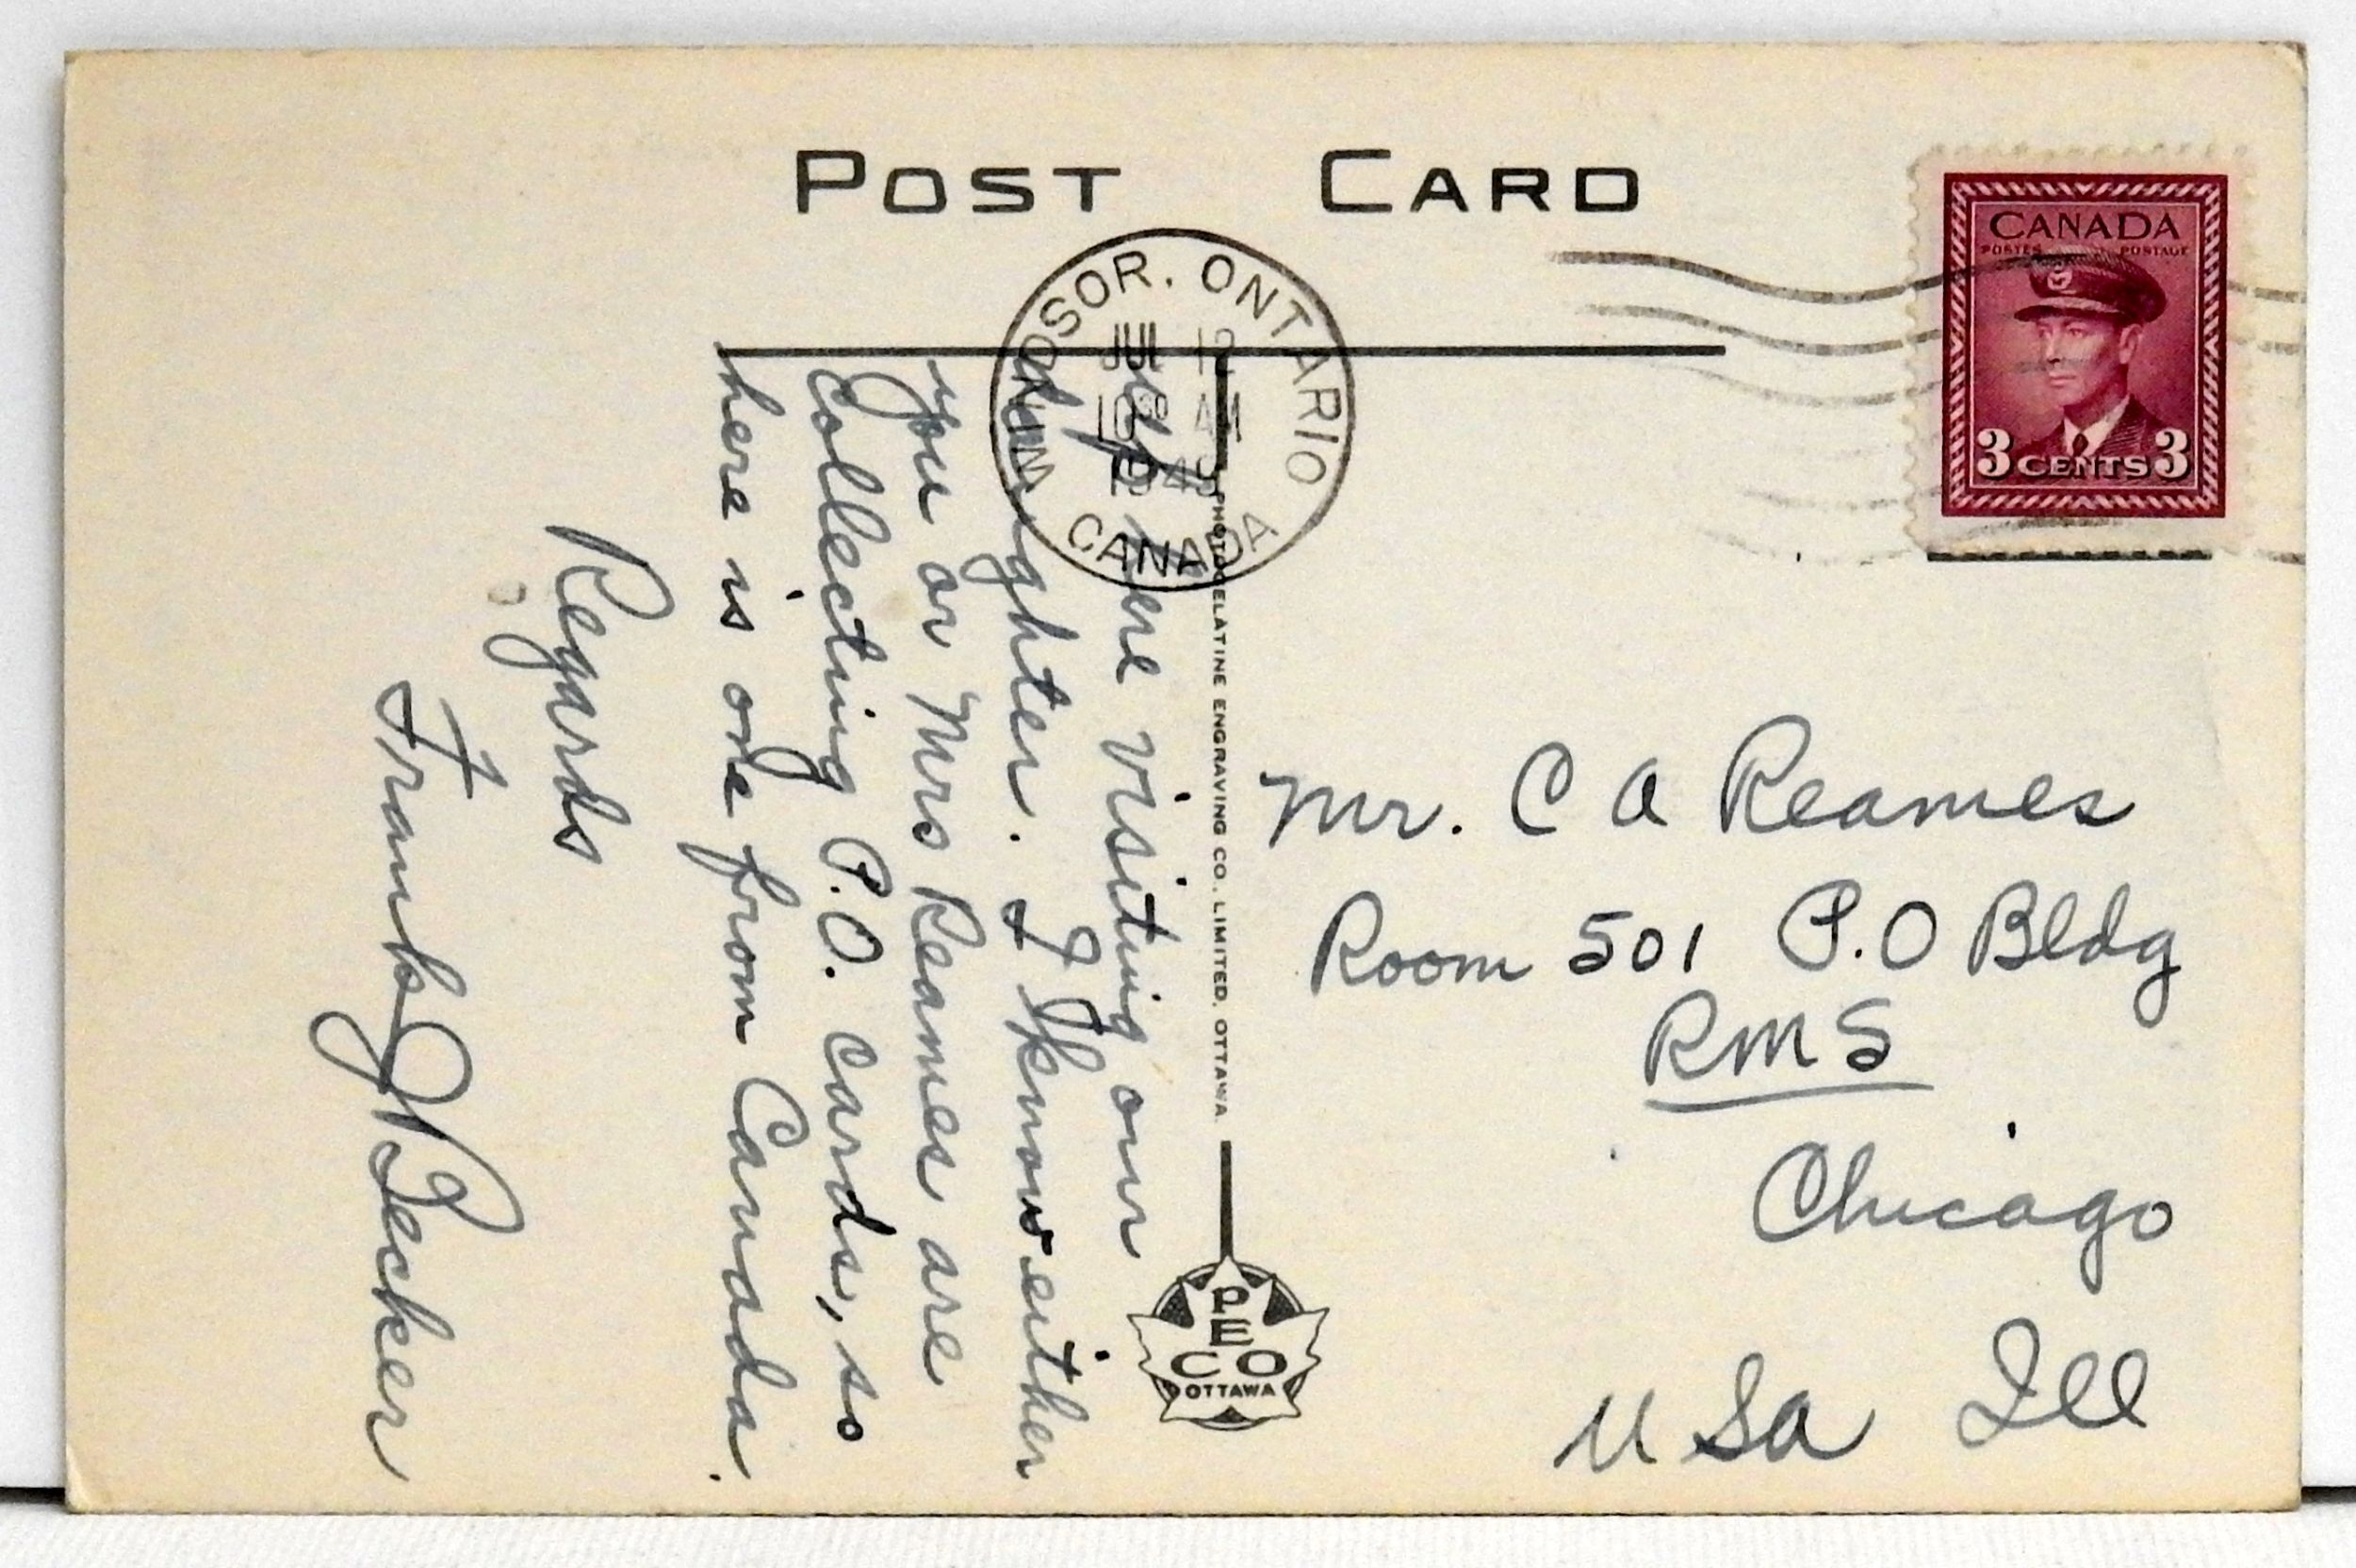 POST CARD
WINDSOR, ONTARIO
JUL 12
AM
CANADA
CANADA
POSTES POSTAGE
3 CENTS 3
Up here visiting our
daughter. I know either
you or Mrs Reames are
collecting P.O. cards, so
here is one from Canada.
Regards
Frank J Becker
PHOTOGELATINE ENGRAVING CO., LIMITED, OTTAWA
PECO
OTTAWA
Mr. C A Reames
Room 501 P.O Bldg
RMS
Chicago
USa Ill